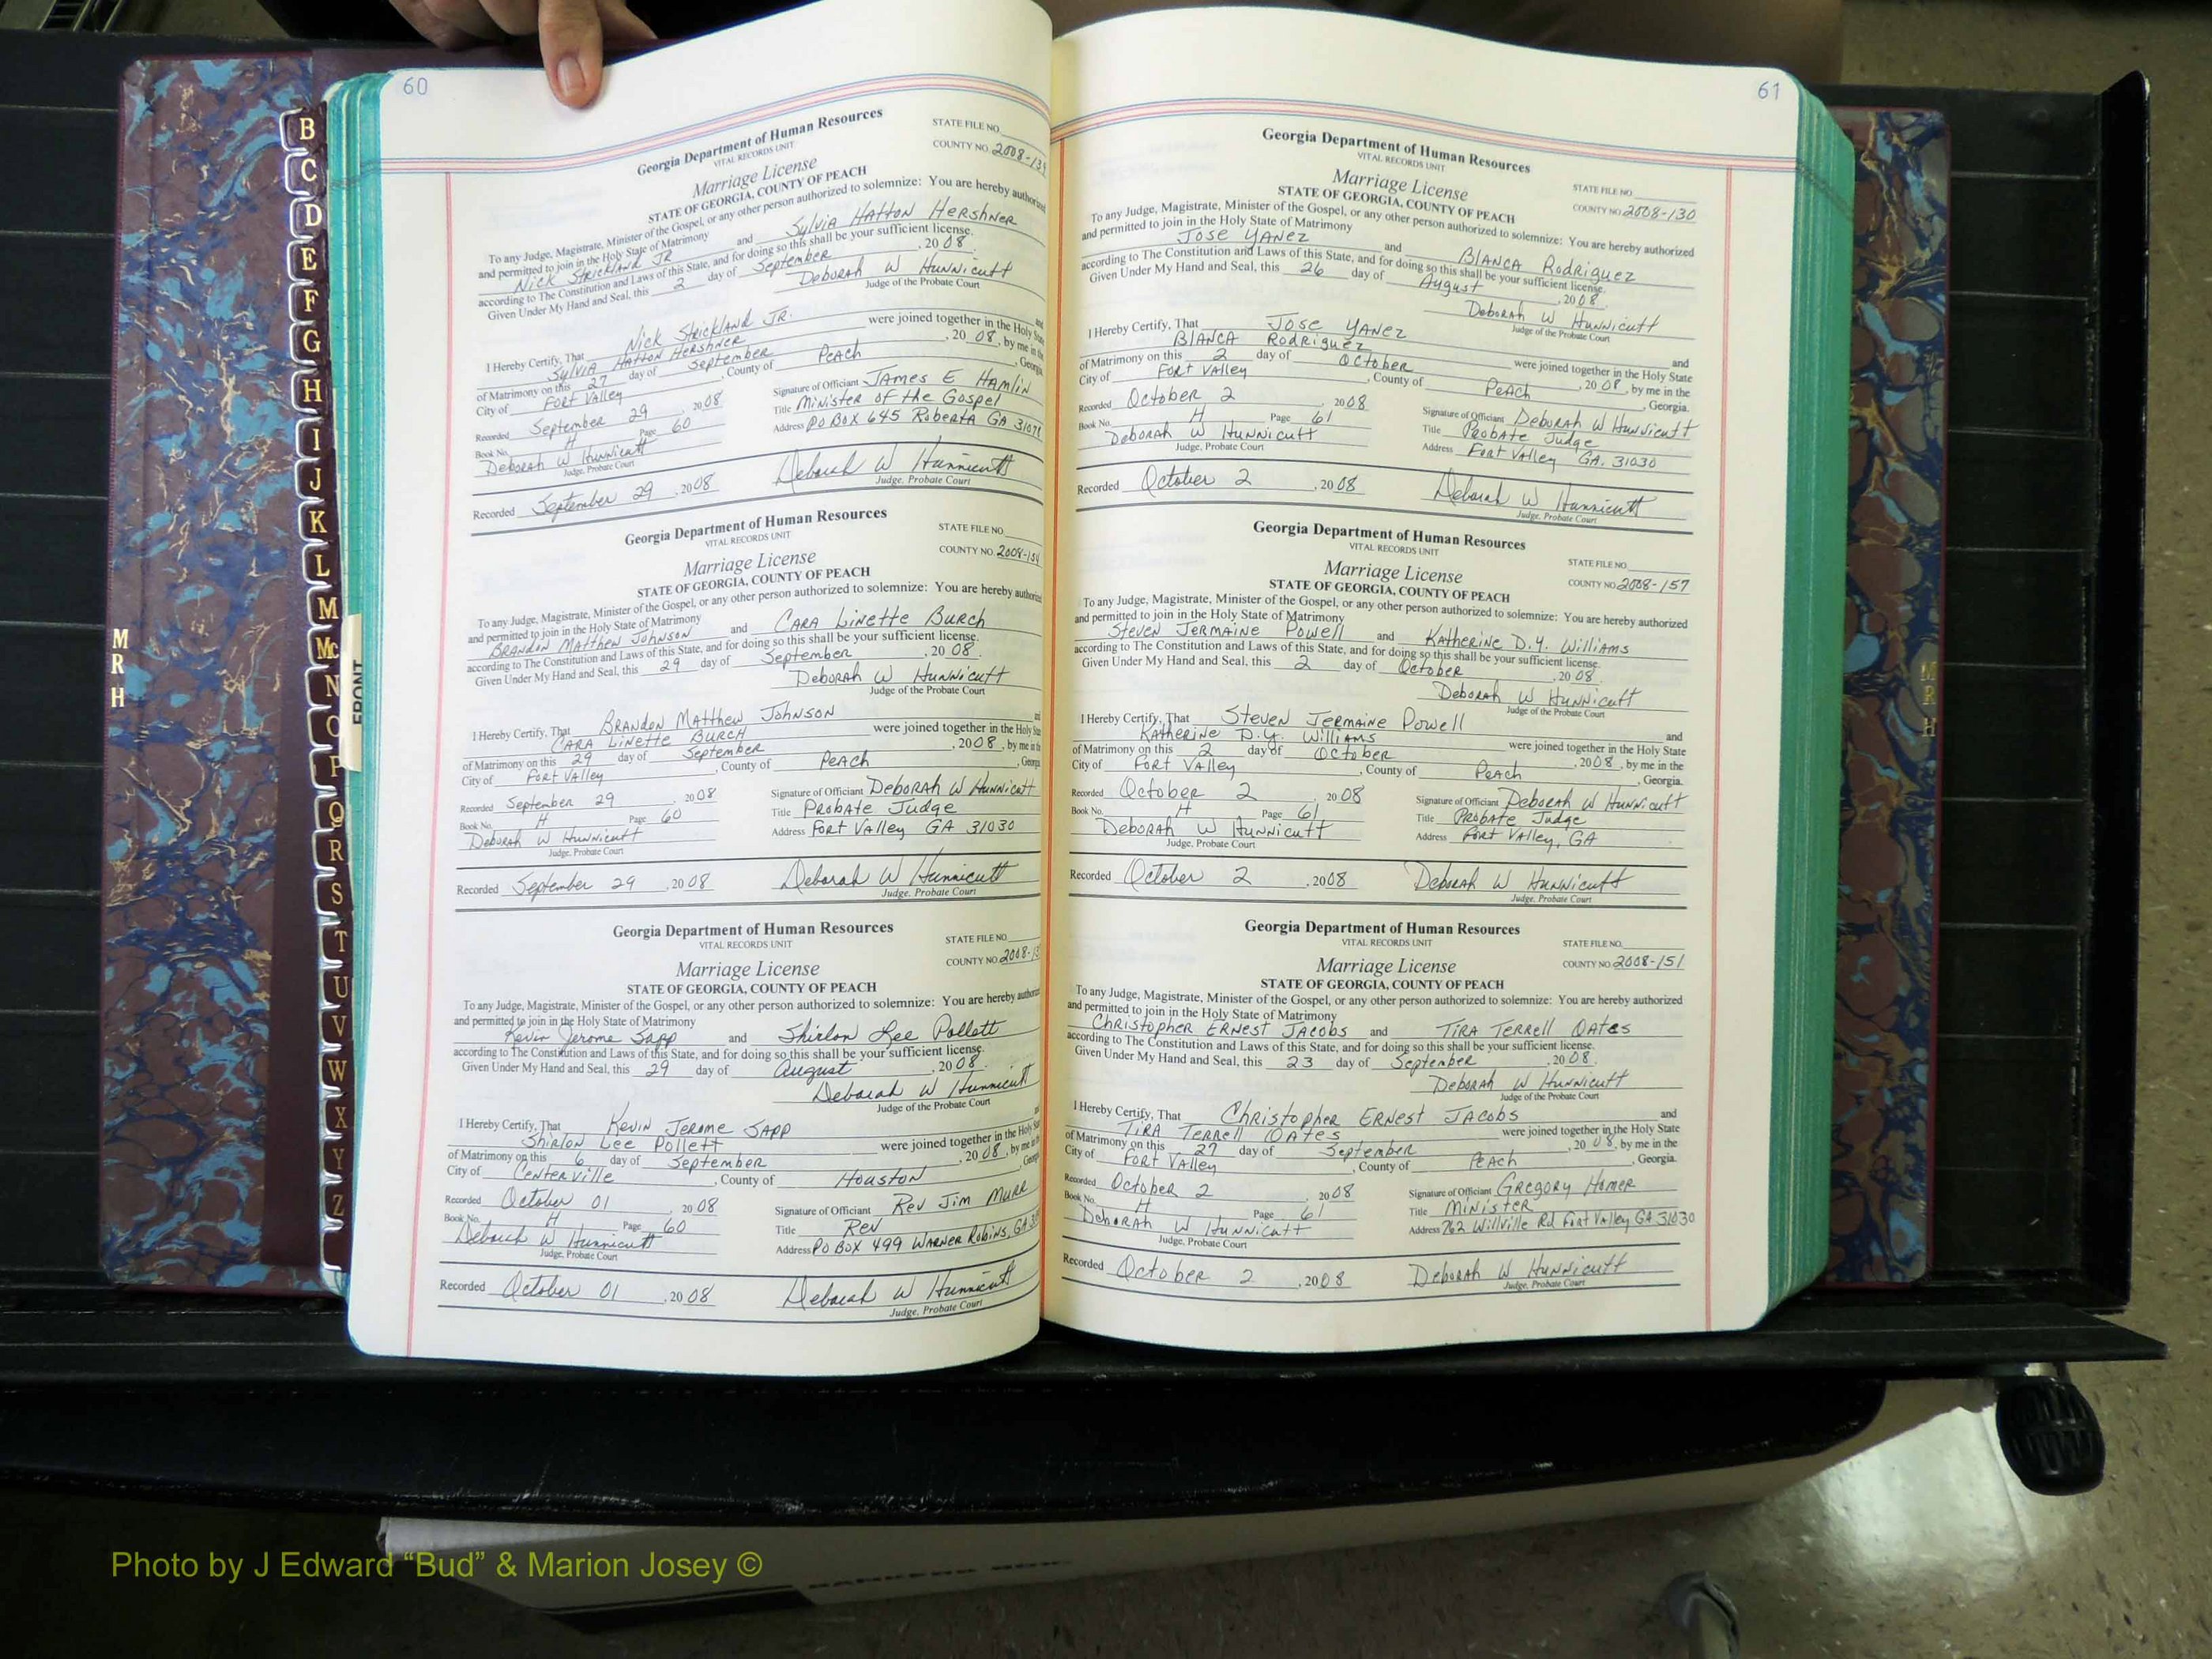 B
C
D
E
F
G
H
I
J
K
L
M
Mc
N
O
P
Q
R
S
T
U
V
W
X
Y
Z
M
R
H
FRONT
60
Georgia Department of Human Resources
VITAL RECORDS UNIT
STATE FILE NO.
COUNTY NO. 2008-13
Marriage License
STATE OF GEORGIA, COUNTY OF PEACH
To any Judge, Magistrate, Minister of the Gospel, or any other person authorized to solemnize: You are hereby authorized
and permitted to join in the Holy State of Matrimony
Nick Strickland JR and Sylvia Hatton Hershner
according to The Constitution and Laws of this State, and for doing so this shall be your sufficient license.
Given Under My Hand and Seal, this 2 day of September, 2008.
Deborah W Hunnicutt
Judge of the Probate Court
I Hereby Certify, That Nick Strickland JR. and
Sylvia Hatton Hershner were joined together in the Holy State
of Matrimony on this 27 day of September, 2008, by me in the
City of Fort Valley, County of Peach, Georgia.
Recorded September 29, 2008
Signature of Officiant James E Hamlin
Book No. H Page 60
Title Minister of the Gospel
Deborah W Hunnicutt
Address PO Box 645 Roberta GA 31078
Judge, Probate Court
Recorded September 29, 2008
Deborah W Hunnicutt
Judge, Probate Court
Georgia Department of Human Resources
VITAL RECORDS UNIT
STATE FILE NO.
COUNTY NO. 2008-154
Marriage License
STATE OF GEORGIA, COUNTY OF PEACH
To any Judge, Magistrate, Minister of the Gospel, or any other person authorized to solemnize: You are hereby authorized
and permitted to join in the Holy State of Matrimony
Brandon Matthew Johnson and Cara Linette Burch
according to The Constitution and Laws of this State, and for doing so this shall be your sufficient license.
Given Under My Hand and Seal, this 29 day of September, 2008.
Deborah W Hunnicutt
Judge of the Probate Court
I Hereby Certify, That Brandon Matthew Johnson and
Cara Linette Burch were joined together in the Holy State
of Matrimony on this 29 day of September, 2008, by me in the
City of Fort Valley, County of Peach, Georgia
Recorded September 29, 2008
Signature of Officiant Deborah W Hunnicutt
Book No. H Page 60
Title Probate Judge
Deborah W Hunnicutt
Address Fort Valley GA 31030
Judge, Probate Court
Recorded September 29, 2008
Deborah W Hunnicutt
Judge, Probate Court
Georgia Department of Human Resources
VITAL RECORDS UNIT
STATE FILE NO.
COUNTY NO. 2008-13
Marriage License
STATE OF GEORGIA, COUNTY OF PEACH
To any Judge, Magistrate, Minister of the Gospel, or any other person authorized to solemnize: You are hereby authorized
and permitted to join in the Holy State of Matrimony
Kevin Jerome Sapp and Shirlon Lee Pollett
according to The Constitution and Laws of this State, and for doing so this shall be your sufficient license.
Given Under My Hand and Seal, this 29 day of August, 2008.
Deborah W Hunnicutt
Judge of the Probate Court
I Hereby Certify, That Kevin Jerome Sapp and
Shirlon Lee Pollett were joined together in the Holy State
of Matrimony on this 6 day of September, 2008, by me in the
City of Centerville, County of Houston, Georgia
Recorded October 01, 2008
Signature of Officiant Rev Jim Murr
Book No. H Page 60
Title Rev
Deborah W Hunnicutt
Address PO Box 499 Warner Robins, GA
Judge, Probate Court
Recorded October 01, 2008
Deborah W Hunnicutt
Judge, Probate Court
61
Georgia Department of Human Resources
VITAL RECORDS UNIT
STATE FILE NO.
COUNTY NO. 2008-130
Marriage License
STATE OF GEORGIA, COUNTY OF PEACH
To any Judge, Magistrate, Minister of the Gospel, or any other person authorized to solemnize: You are hereby authorized
and permitted to join in the Holy State of Matrimony
Jose Yanez and Blanca Rodriguez
according to The Constitution and Laws of this State, and for doing so this shall be your sufficient license.
Given Under My Hand and Seal, this 26 day of August, 2008.
Deborah W Hunnicutt
Judge of the Probate Court
I Hereby Certify, That Jose Yanez and
Blanca Rodriguez were joined together in the Holy State
of Matrimony on this 2 day of October, 2008, by me in the
City of Fort Valley, County of Peach, Georgia.
Recorded October 2, 2008
Signature of Officiant Deborah W Hunnicutt
Book No. H Page 61
Title Probate Judge
Deborah W Hunnicutt
Address Fort Valley GA. 31030
Judge, Probate Court
Recorded October 2, 2008
Deborah W Hunnicutt
Judge, Probate Court
Georgia Department of Human Resources
VITAL RECORDS UNIT
STATE FILE NO.
COUNTY NO. 2008-157
Marriage License
STATE OF GEORGIA, COUNTY OF PEACH
To any Judge, Magistrate, Minister of the Gospel, or any other person authorized to solemnize: You are hereby authorized
and permitted to join in the Holy State of Matrimony
Steven Jermaine Powell and Katherine D.Y. Williams
according to The Constitution and Laws of this State, and for doing so this shall be your sufficient license.
Given Under My Hand and Seal, this 2 day of October, 2008.
Deborah W Hunnicutt
Judge of the Probate Court
I Hereby Certify, That Steven Jermaine Powell and
Katherine D.Y. Williams were joined together in the Holy State
of Matrimony on this 2 day of October, 2008, by me in the
City of Fort Valley, County of Peach, Georgia.
Recorded October 2, 2008
Signature of Officiant Deborah W Hunnicutt
Book No. H Page 61
Title Probate Judge
Deborah W Hunnicutt
Address Fort Valley, GA
Judge, Probate Court
Recorded October 2, 2008
Deborah W Hunnicutt
Judge, Probate Court
Georgia Department of Human Resources
VITAL RECORDS UNIT
STATE FILE NO.
COUNTY NO. 2008-151
Marriage License
STATE OF GEORGIA, COUNTY OF PEACH
To any Judge, Magistrate, Minister of the Gospel, or any other person authorized to solemnize: You are hereby authorized
and permitted to join in the Holy State of Matrimony
Christopher Ernest Jacobs and Tira Terrell Oates
according to The Constitution and Laws of this State, and for doing so this shall be your sufficient license.
Given Under My Hand and Seal, this 23 day of September, 2008.
Deborah W Hunnicutt
Judge of the Probate Court
I Hereby Certify, That Christopher Ernest Jacobs and
Tira Terrell Oates were joined together in the Holy State
of Matrimony on this 27 day of September, 2008, by me in the
City of Fort Valley, County of Peach, Georgia.
Recorded October 2, 2008
Signature of Officiant Gregory Homer
Book No. H Page 61
Title Minister
Deborah W Hunnicutt
Address 762 Willville Rd Fort Valley GA 31030
Judge, Probate Court
Recorded October 2, 2008
Deborah W Hunnicutt
Judge, Probate Court
M
R
H
Photo by J Edward “Bud” & Marion Josey ©